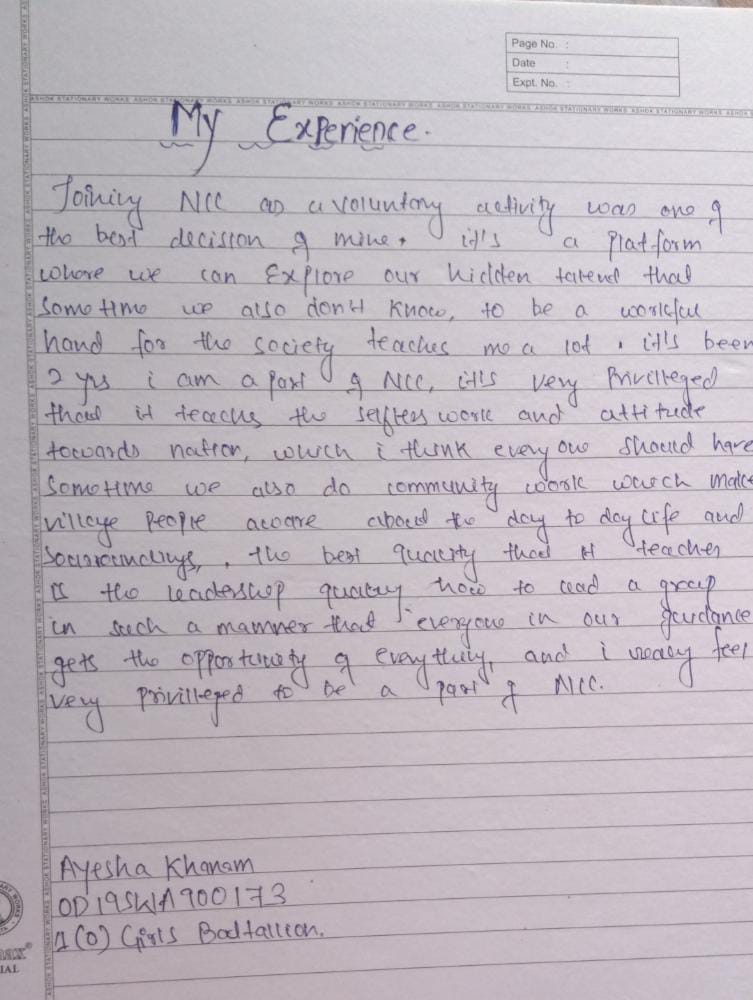 Page No. :
Date :
Expt. No. :
ASHOK STATIONARY WORKS ASHOK STATIONARY WORKS ASHOK STATIONARY WORKS
My Experience.
Joining NCC as a voluntary activity was one of
the best decision of mine. it's a platform
where we can Explore our hidden talend that
sometime we also don't know, to be a workful
hand for the society teaches me a lot. it's been
2 yrs i am a part of NCC, it's very Privilleged
that it teachs the selfless work and attitude
towards nation, which i think every one should have
sometime we also do community work which make
village People aware about the day to day life and
Sourroundings, the best quality that it teaches
is the leadership quality how to lead a group
in such a mamner that everyone in our guidance
gets the opportunity of everything, and i really feel
very privilleged to be a part of NCC.
Ayesha Khanam
OD19SWA900173
1(O) Girls Battallion.
IAL